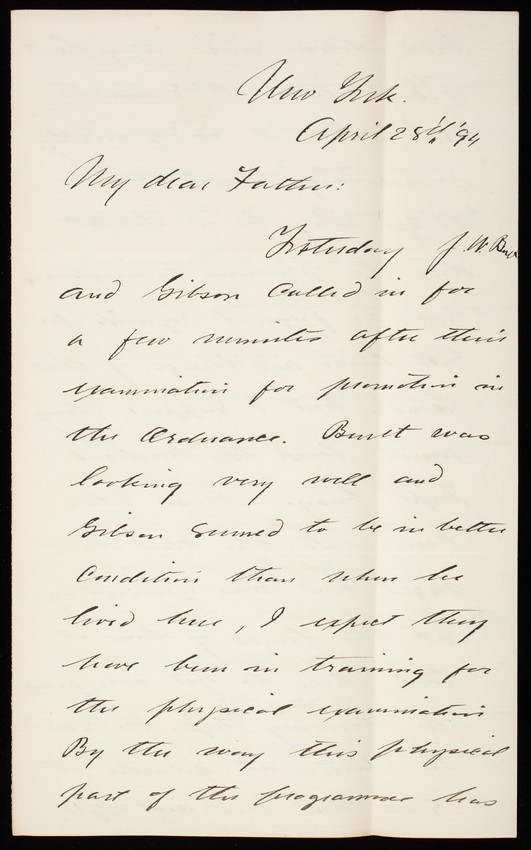 New York.
April 28th '94
My dear Father:
Yesterday J. W.
and Gibson called in for
a few minutes after their
examination for promotion in
the Ordnance. was
looking very well and
Gibson seemed to be in better
condition than when he
lived here, I expect they
have been in training for
the physical examination
By the way this physical
part of the programme has